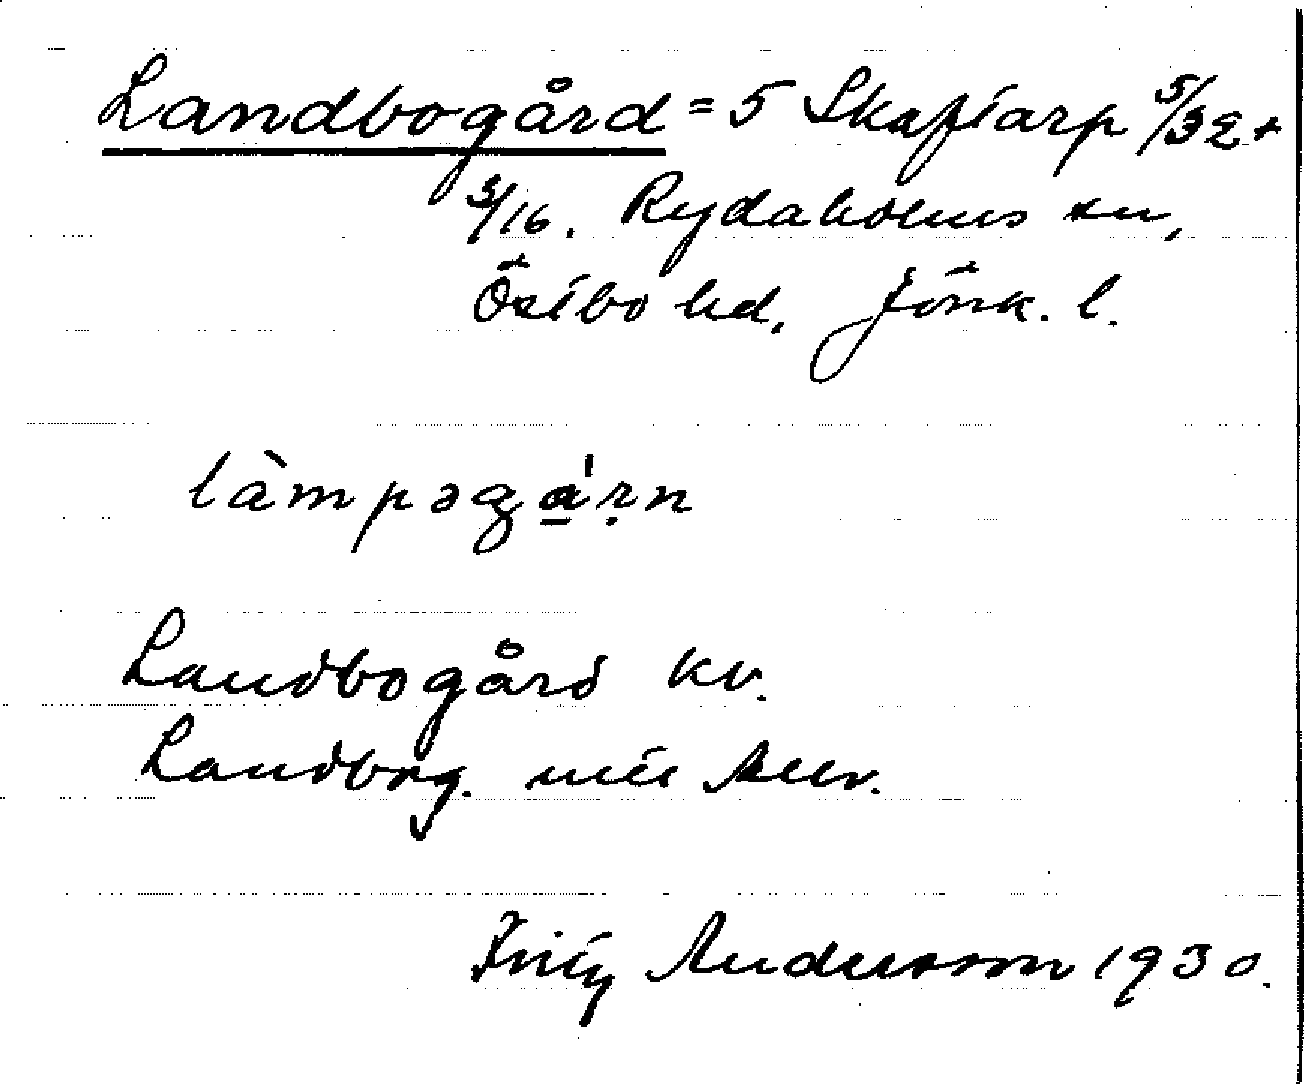 Landbogård = 5 Skaftarp 5/32 +
3/16. Rydaholms sn,
Östbo hd, Jönk. l.
làmpəga̲'ṛn
Landbogård kv.
Landbog.
Fritz Andersson 1930.